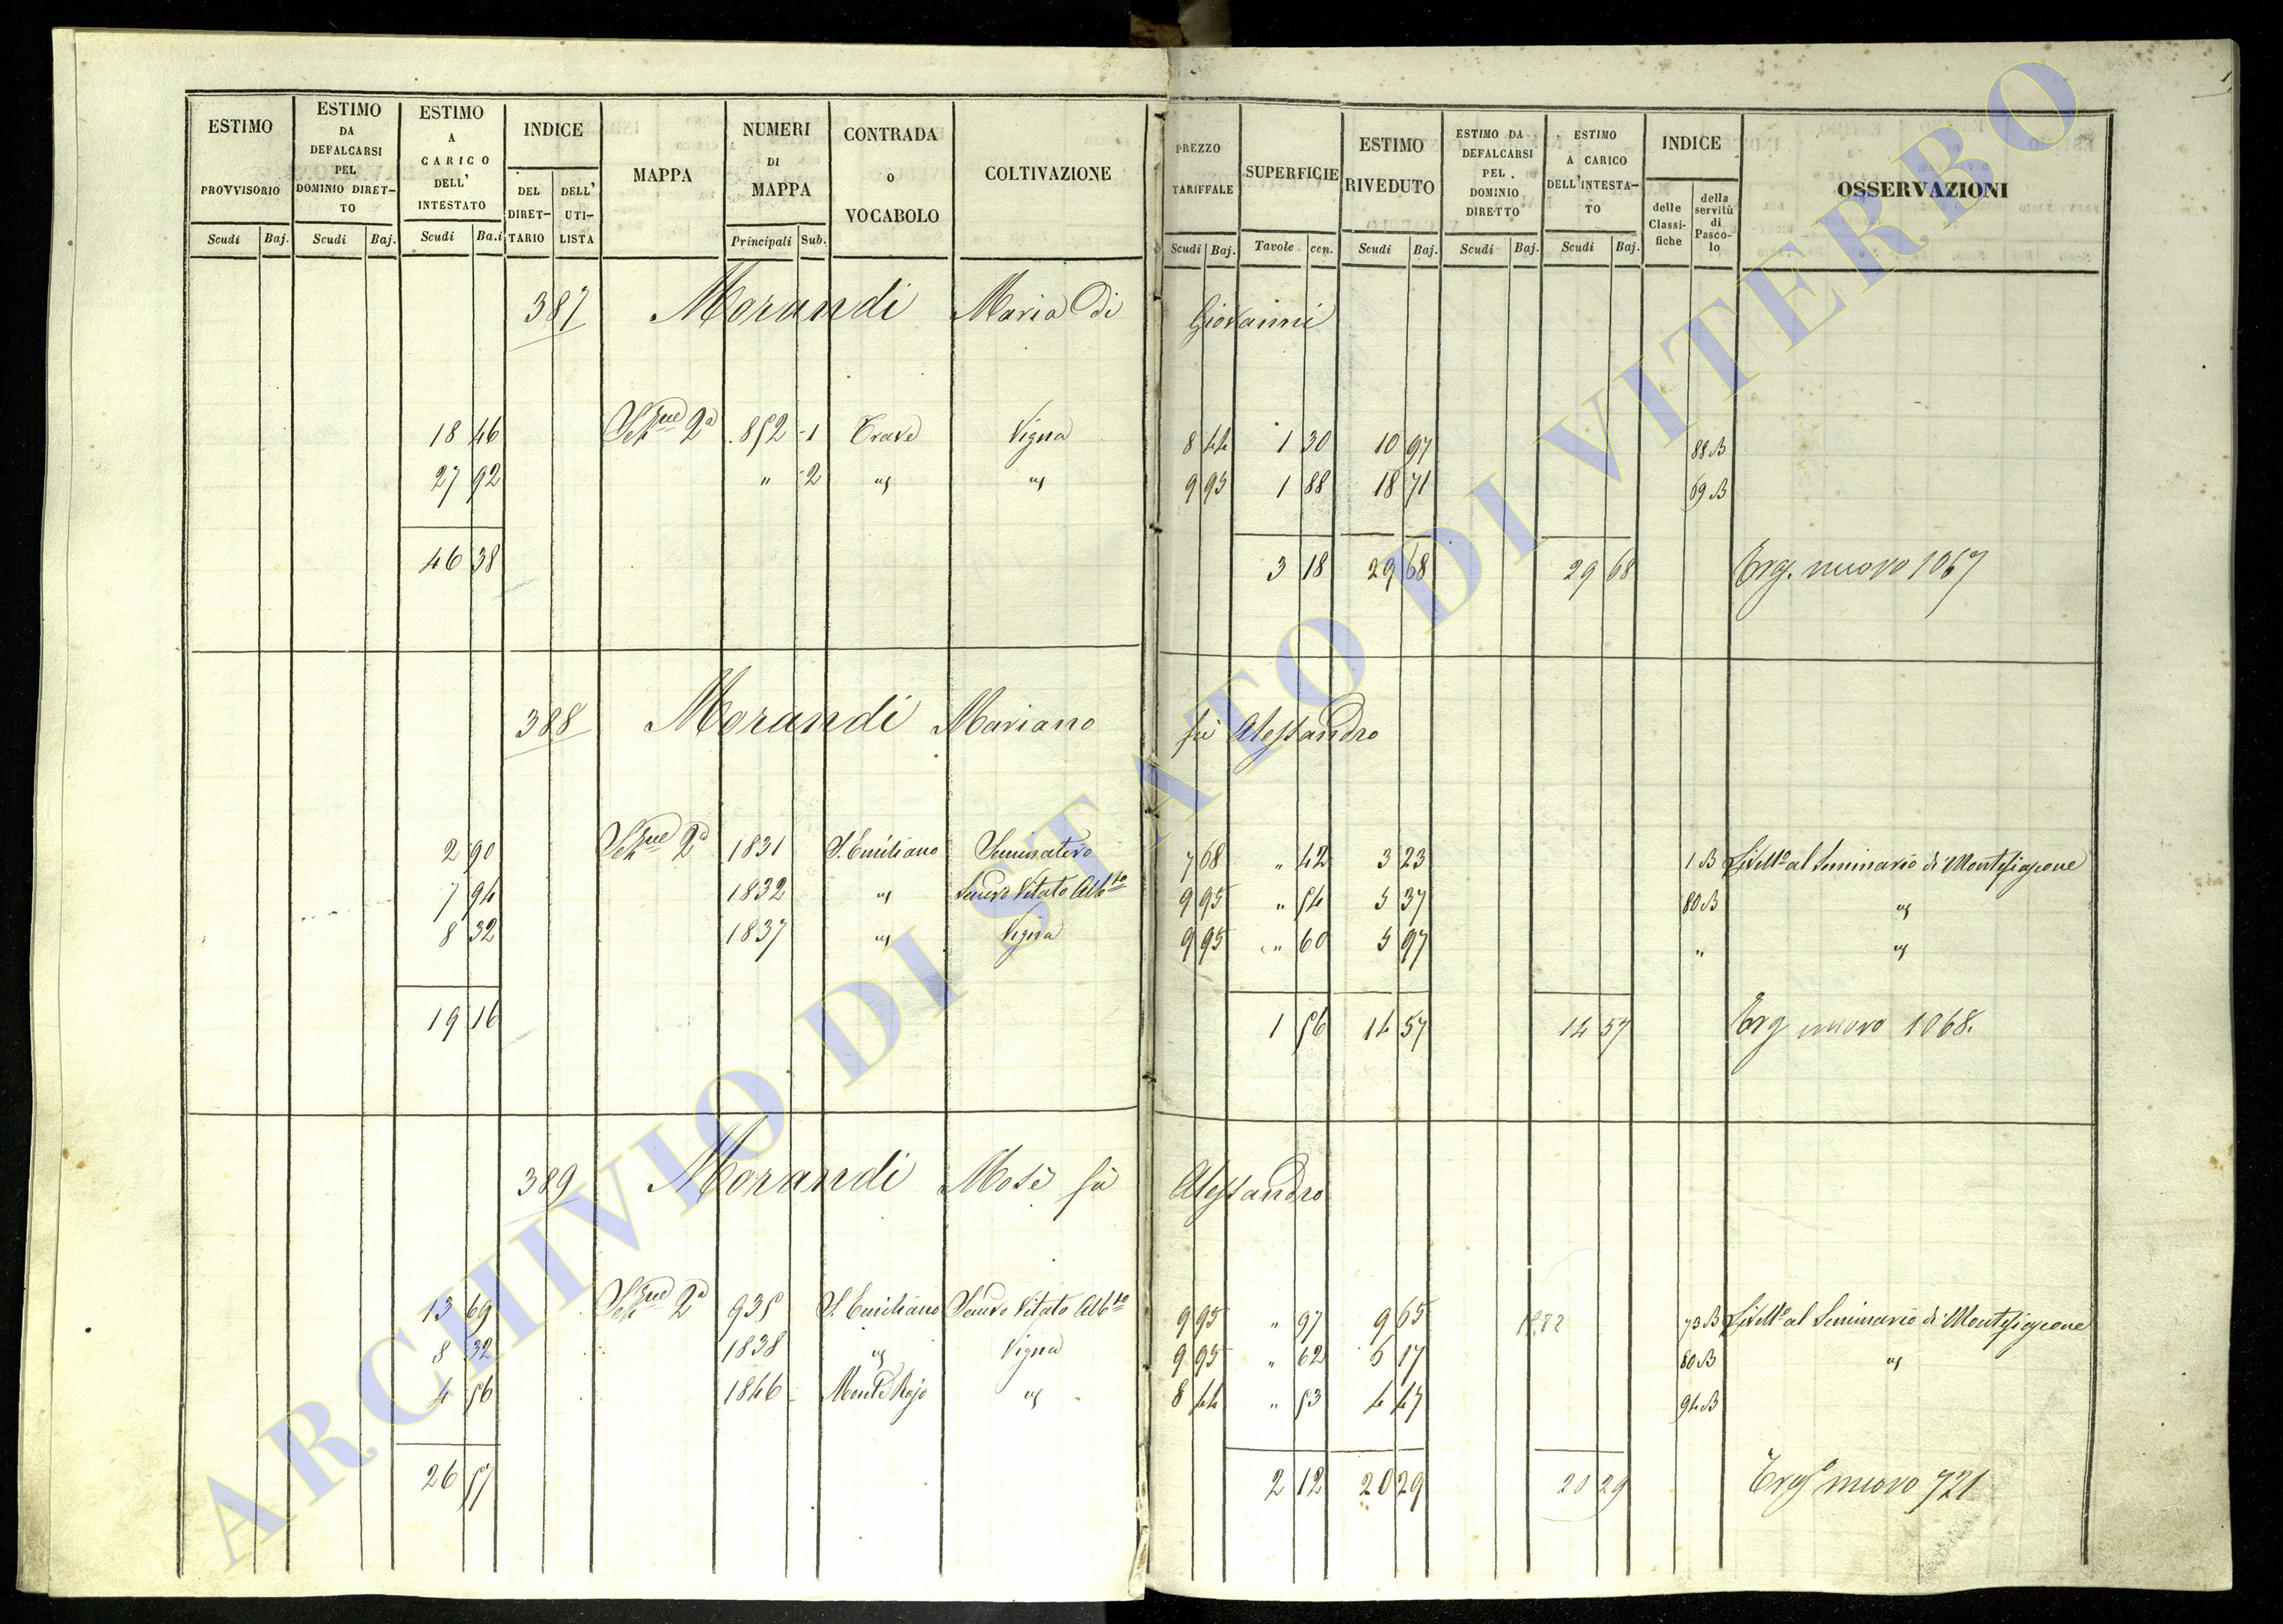 ESTIMO PROVVISORIO
Scudi Baj.
ESTIMO DA DEFALCARSI PEL DOMINIO DIRET-TO
Scudi Baj.
ESTIMO A CARICO DELL' INTESTATO
Scudi Ba.i
INDICE
DEL DIRET-TARIO
DELL' UTI-LISTA
MAPPA
NUMERI DI MAPPA
Principali Sub.
CONTRADA o VOCABOLO
COLTIVAZIONE
PREZZO TARIFFALE
Scudi Baj.
SUPERFICIE
Tavole cen.
ESTIMO RIVEDUTO
Scudi Baj.
ESTIMO DA DEFALCARSI PEL DOMINIO DIRETTO
Scudi Baj.
ESTIMO A CARICO DELL'INTESTA-TO
Scudi Baj.
INDICE
delle Classi-fiche
della servitù di Pasco-lo
OSSERVAZIONI
387 Morandi Maria Di Giovanni
18 46 2a 852 1 Trave Vigna 8 44 1 30 10 97 88 B
27 92 " 2 " " 9 95 1 88 18 71 69 B
46 38 3 18 29 68 29 68 nuovo 1067
388 Morandi Mariano fù Alessandro
2 90 2a 1831 S. Emiliano Seminativo 7 68 " 42 3 23 1 B Livello al Seminario di Montefiascone
7 94 1832 " Semvo Vitato Albto 9 95 " 54 5 37 80 B "
8 32 1837 " Vigna 9 95 " 60 5 97 " "
19 16 1 56 14 57 14 57 nuovo 1068.
389 Morandi Mosè fù Alessandro
13 69 2a 935 S. Emiliano Semvo Vitato Albto 9 95 " 97 9 65 73 B Livello al Seminario di Montefiascone
8 32 1838 " Vigna 9 95 " 62 6 17 80 B "
4 56 1846 Monte Rojo " 8 44 " 53 4 47 94 B
26 57 2 12 20 29 20 29 nuovo 721
ARCHIVIO DI STATO DI VITERBO